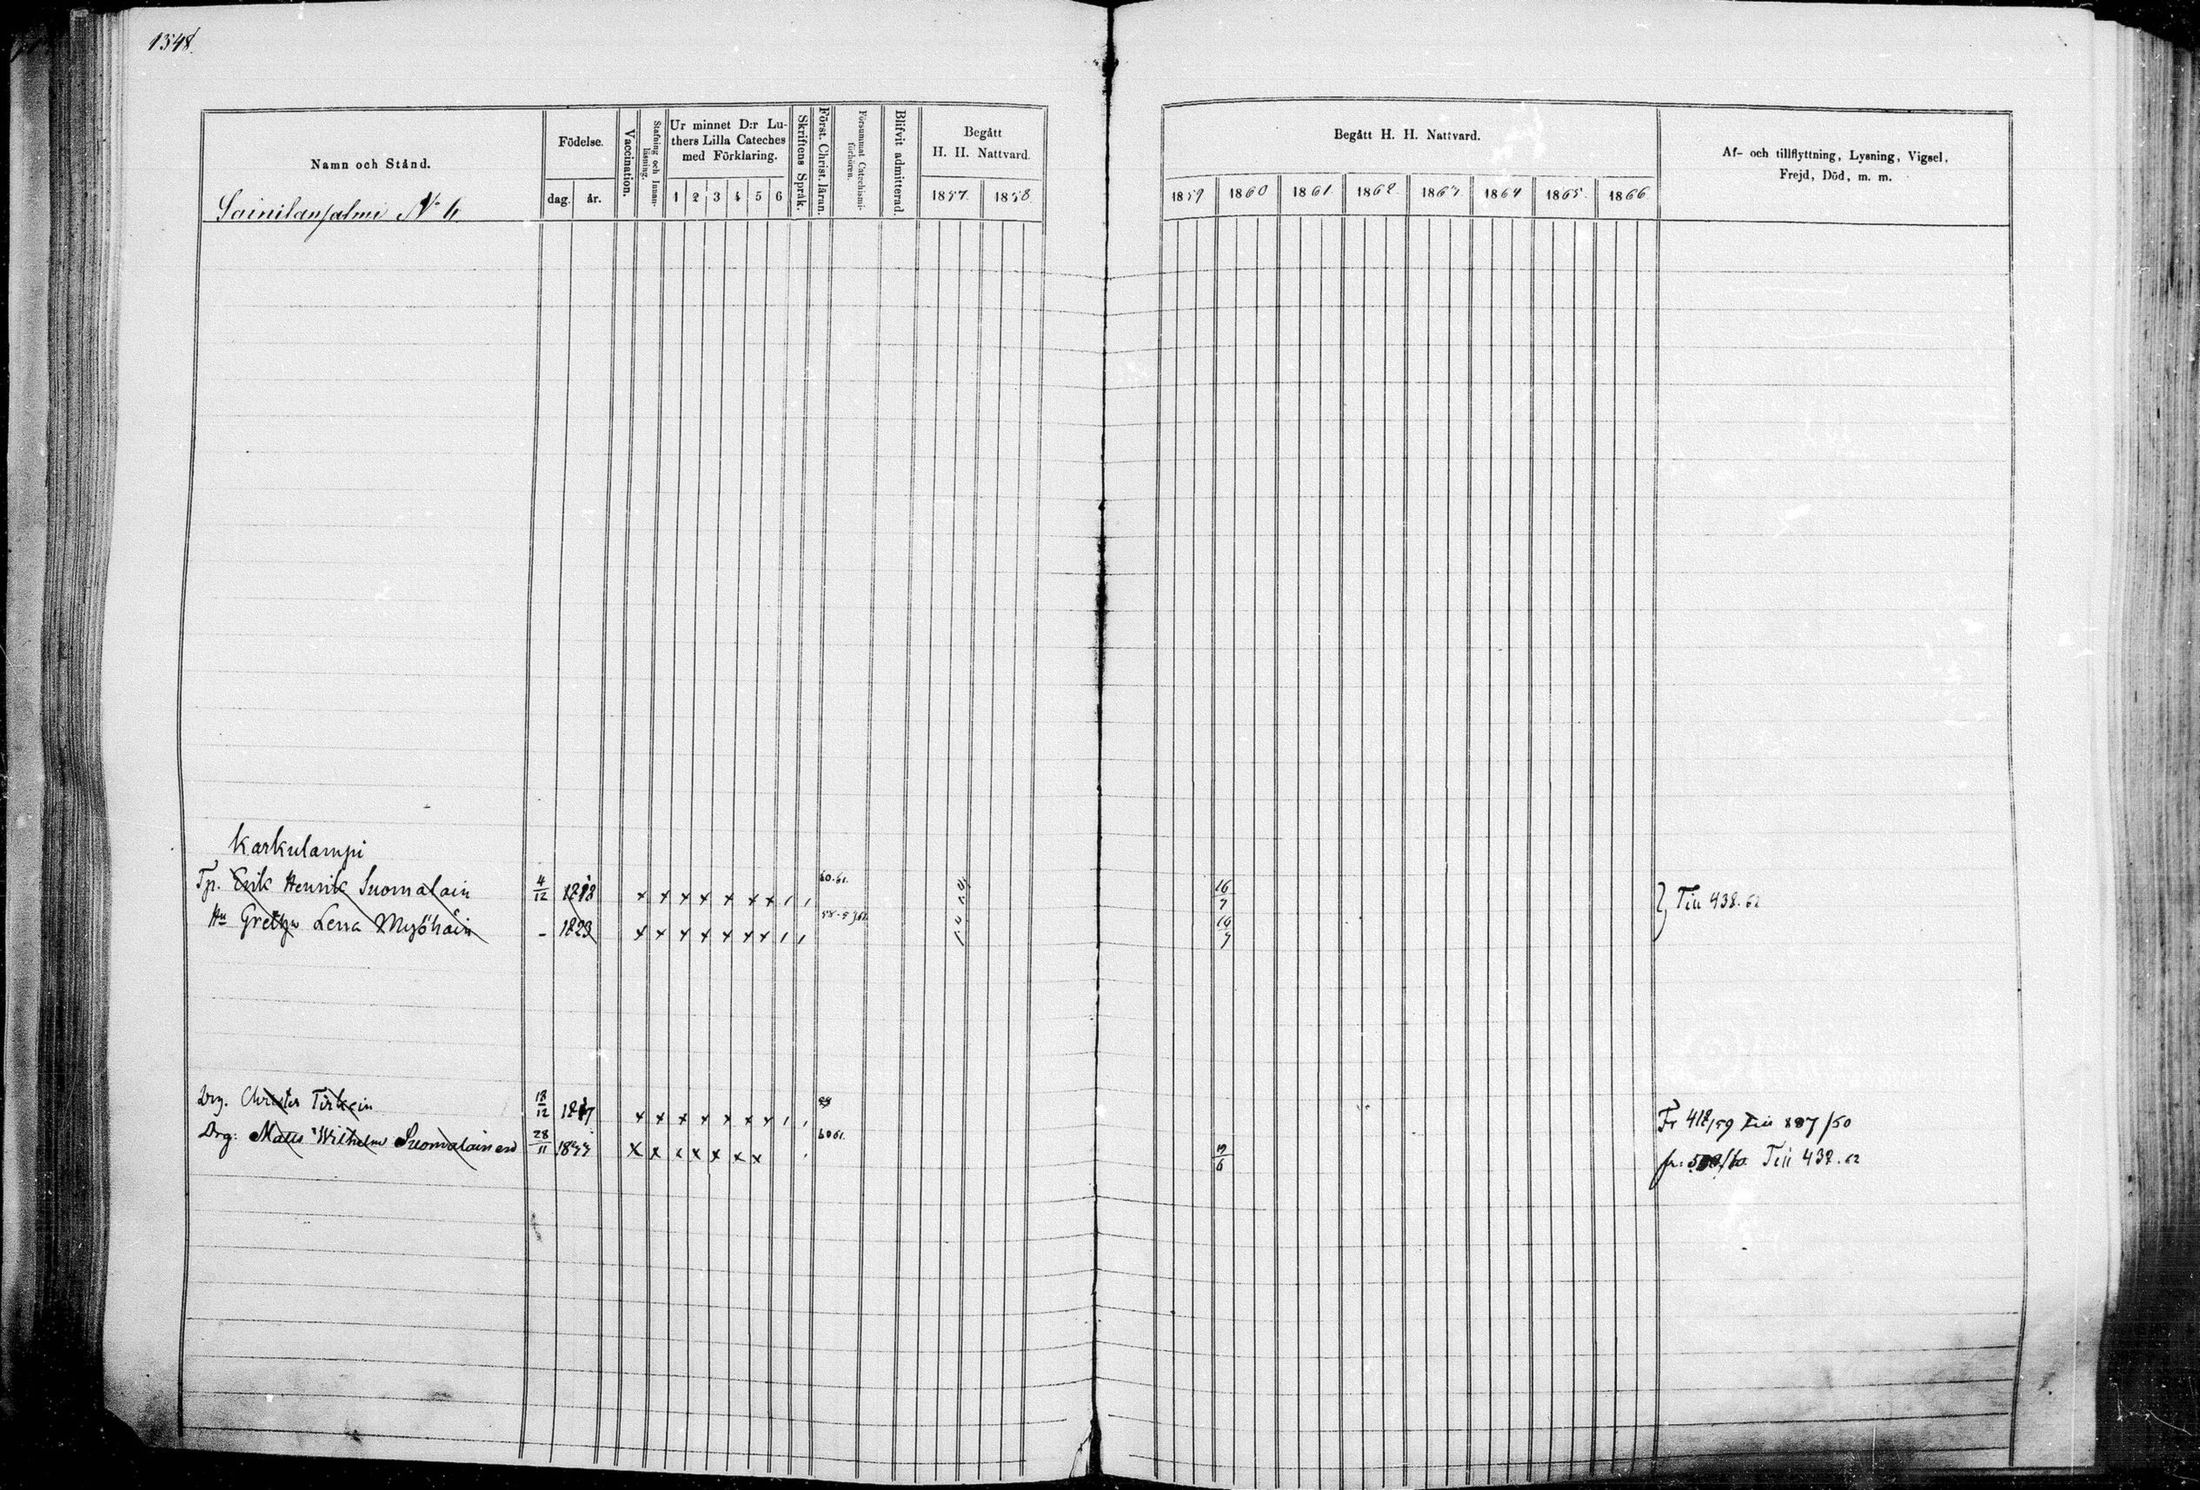 1548.
Namn och Stånd.
Födelse.
dag. år.
Vaccination.
Stafning och Innan-
läsning.
Ur minnet D:r Lu-
thers Lilla Cateches
med Förklaring.
1 2 3 4 5 6
Skriftens Språk.
Först. Christ. läran.
Försummat Catechismi-
förhören.
Blifvit admitterad.
Begått
H. H. Nattvard.
1857. 1858.
Begått H. H. Nattvard.
1859 1860 1861 1862 1863 1864 1865. 1866
Af- och tillflyttning, Lysning, Vigsel,
Frejd, Död, m. m.
Sainilansalmi No 6.
Karkulampi
Tp. Erik Henrik Suomalain 4/12 1818 x x x x x x x 60.61. 16/7 Till 438.62
Hu Gretha Lena Myöhäin - 1823 x x x x x x x 16/7
Drg. Christer Tirkein 18/12 1817 x x x x x x x Fr 412/59 Till 887/50
Drg: Mats Wilhelm Suomalainen 28/11 x x x x x x x 60 61. Till 438.62